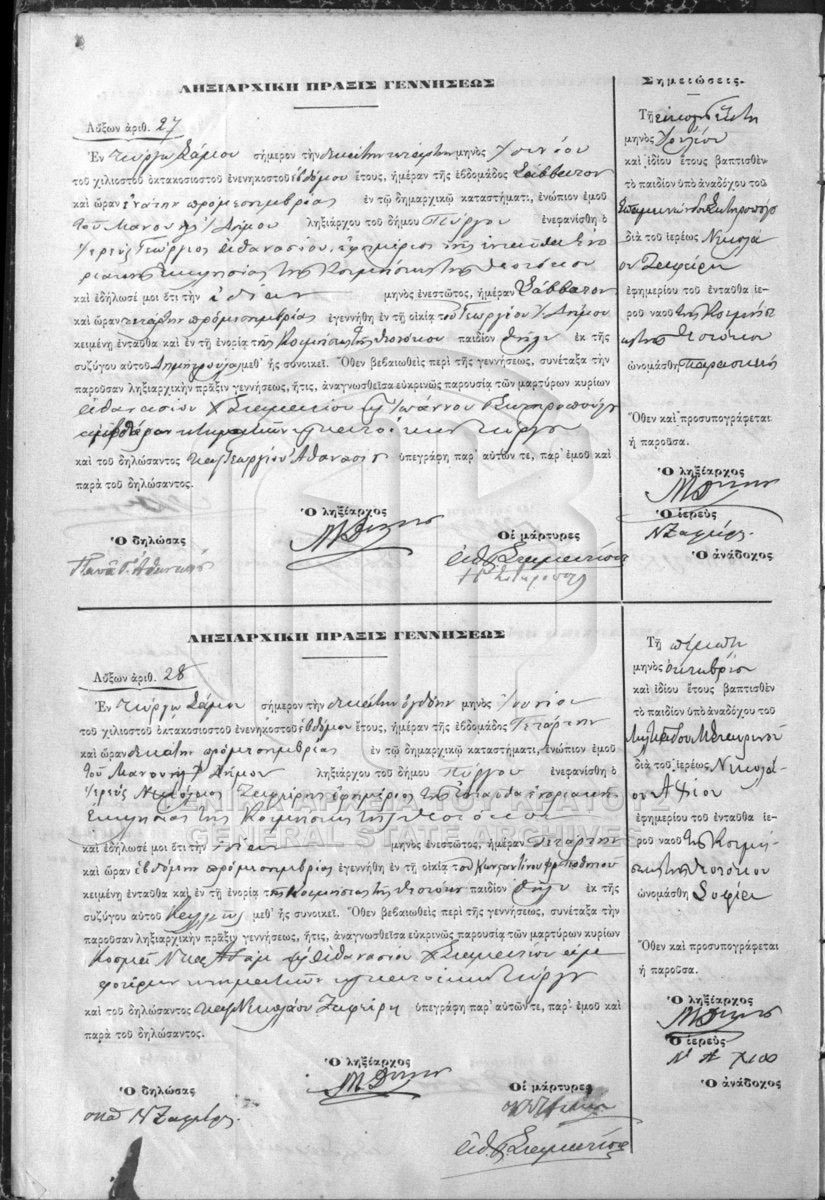 ΛΗΞΙΑΡΧΙΚΗ ΠΡΑΞΙΣ ΓΕΝΝΗΣΕΩΣ
Αὔξων ἀριθ. 27
Ἐν Πύργῳ Σάμου σήμερον τὴν δεκάτην τετάρτην μηνὸς Ἰουνίου
τοῦ χιλιοστοῦ ὀκτακοσιοστοῦ ἐνενηκοστοῦ ἑβδόμου ἔτους, ἡμέραν τῆς ἑβδομάδος Σάββατον
καὶ ὥραν ἐνάτην πρὸ μεσημβρίας ἐν τῷ δημαρχικῷ καταστήματι, ἐνώπιον ἐμοῦ
τοῦ Μανουὴλ Δήμου ληξιάρχου τοῦ δήμου Πύργου ἐνεφανίσθη ὁ
Ἱερεὺς Γεώργιος Ἀθανασίου, ἐφημέριος τῆς ἐνταῦθα ἐνο
ριακῆς Ἐκκλησίας τῆς Κοιμήσεως τῆς Θεοτόκου
καὶ ἐδήλωσέ μοι ὅτι τὴν ἰδίαν μηνὸς ἐνεστῶτος, ἡμέραν Σάββατον
καὶ ὥραν τετάρτην πρὸ μεσημβρίας ἐγεννήθη ἐν τῇ οἰκίᾳ τοῦ Γεωργίου Δήμου
κειμένῃ ἐνταῦθα καὶ ἐν τῇ ἐνορίᾳ τῆς Κοιμήσεως τῆς Θεοτόκου παιδίον θῆλυ ἐκ τῆς
συζύγου αὐτοῦ Δημητρούλας μεθ᾽ ἧς συνοικεῖ. Ὅθεν βεβαιωθεὶς περὶ τῆς γεννήσεως, συνέταξα τὴν
παροῦσαν ληξιαρχικὴν πρᾶξιν γεννήσεως, ἥτις, ἀναγνωσθεῖσα εὐκρινῶς παρουσίᾳ τῶν μαρτύρων κυρίων
Ἀθανασίου Σταματίου καὶ Ἰωάννου Σωτηροπούλου
ἀμφοτέρων κτηματικῶν κατοίκων Πύργου
καὶ τοῦ δηλώσαντος Γεωργίου Ἀθανασίου ὑπεγράφη παρ᾽ αὐτῶν τε, παρ᾽ ἐμοῦ καὶ
παρὰ τοῦ δηλώσαντος.
Ὁ ληξίαρχος
Ὁ δηλώσας
Οἱ μάρτυρες
Σημειώσεις.
Τῇ εἰκοστῇ ἕκτῃ
μηνὸς Ἰουλίου
καὶ ἰδίου ἔτους βαπτισθὲν
τὸ παιδίον ὑπὸ ἀναδόχου τοῦ
Ἐπαμεινώνδου Σωτηροπούλου
διὰ τοῦ ἱερέως Νικολά
ου Ζαφείρη
ἐφημερίου τοῦ ἐνταῦθα ἱε-
ροῦ ναοῦ τῆς Κοιμήσε
ως τῆς Θεοτόκου
ὠνομάσθη Παρασκευή
Ὅθεν καὶ προσυπογράφεται
ἡ παροῦσα.
Ὁ ληξίαρχος
Ὁ ἱερεὺς
Ν Ζαφείρης
Ὁ ἀνάδοχος
ΛΗΞΙΑΡΧΙΚΗ ΠΡΑΞΙΣ ΓΕΝΝΗΣΕΩΣ
Αὔξων ἀριθ. 28
Ἐν Πύργῳ Σάμου σήμερον τὴν δεκάτην ὀγδόην μηνὸς Ἰουνίου
τοῦ χιλιοστοῦ ὀκτακοσιοστοῦ ἐνενηκοστοῦ ἑβδόμου ἔτους, ἡμέραν τῆς ἑβδομάδος Τετάρτην
καὶ ὥραν δεκάτην πρὸ μεσημβρίας ἐν τῷ δημαρχικῷ καταστήματι, ἐνώπιον ἐμοῦ
τοῦ Μανουὴλ Δήμου ληξιάρχου τοῦ δήμου Πύργου ἐνεφανίσθη ὁ
Ἱερεὺς Νικόλαος Ζαφείρης ἐφημέριος τῆς ἐνταῦθα ἐνοριακῆς
Ἐκκλησίας τῆς Κοιμήσεως τῆς Θεοτόκου
καὶ ἐδήλωσέ μοι ὅτι τὴν ἰδίαν μηνὸς ἐνεστῶτος, ἡμέραν Τετάρτην
καὶ ὥραν ἑβδόμην πρὸ μεσημβρίας ἐγεννήθη ἐν τῇ οἰκίᾳ τοῦ Κωνσταντίνου
κειμένῃ ἐνταῦθα καὶ ἐν τῇ ἐνορίᾳ τῆς Κοιμήσεως τῆς Θεοτόκου παιδίον θῆλυ ἐκ τῆς
συζύγου αὐτοῦ μεθ᾽ ἧς συνοικεῖ. Ὅθεν βεβαιωθεὶς περὶ τῆς γεννήσεως, συνέταξα τὴν
παροῦσαν ληξιαρχικὴν πρᾶξιν γεννήσεως, ἥτις, ἀναγνωσθεῖσα εὐκρινῶς παρουσίᾳ τῶν μαρτύρων κυρίων
Κοσμᾶ καὶ Ἀθανασίου Σταματίου ἀμ
φοτέρων κτηματικῶν κατοίκων Πύργου
καὶ τοῦ δηλώσαντος Νικολάου Ζαφείρη ὑπεγράφη παρ᾽ αὐτῶν τε, παρ᾽ ἐμοῦ καὶ
παρὰ τοῦ δηλώσαντος.
Ὁ ληξίαρχος
Ὁ δηλώσας
Ν Ζαφείρης
Οἱ μάρτυρες
Τῇ πέμπτῃ
μηνὸς Ὀκτωβρίου
καὶ ἰδίου ἔτους βαπτισθὲν
τὸ παιδίον ὑπὸ ἀναδόχου τοῦ
Μιλτιάδου
διὰ τοῦ ἱερέως Νικολά
ου Ἀξίου
ἐφημερίου τοῦ ἐνταῦθα ἱε-
ροῦ ναοῦ τῆς Κοιμή
σεως τῆς Θεοτόκου
ὠνομάσθη Σοφία
Ὅθεν καὶ προσυπογράφεται
ἡ παροῦσα.
Ὁ ληξίαρχος
Ὁ ἱερεὺς
Ὁ ἀνάδοχος
ΓΕΝΙΚΑ ΑΡΧΕΙΑ ΤΟΥ ΚΡΑΤΟΥΣ
GENERAL STATE ARCHIVES